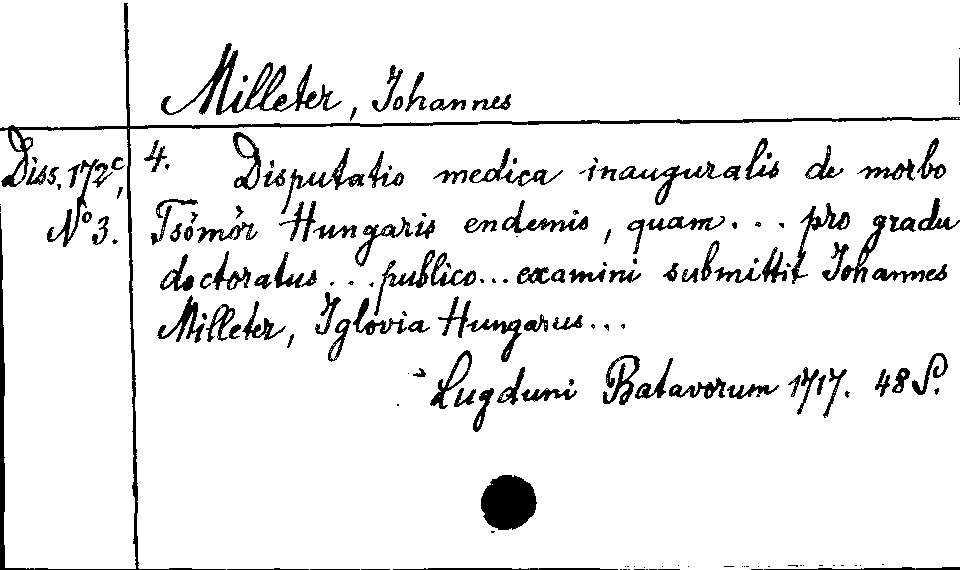 Milleter, Johannes
Diss. 172c,
No 3.
4. Disputatio medica inauguralis de morbo
Tsömör Hungaris endemio, quam... pro gradu
doctoratus... publico... examini submittit Johannes
Milleter, Iglovia Hungarus...
Lugduni Batavorum 1717. 48 S.